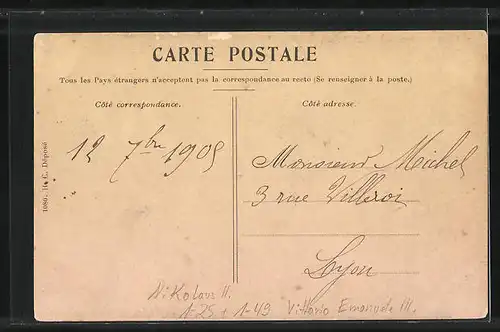 CARTE POSTALE
Tous les Pays étrangers n'acceptent pas la correspondance au recto (Se renseigner à la poste.)
Côté correspondance.
Côté adresse.
12 7bre 1905
Monsieur Michel
3 rue Villeroi
Lyon
1080. H& C. Déposé
Nikolaus II.
1-25 + 1-49 Vittorio Emanuele III.